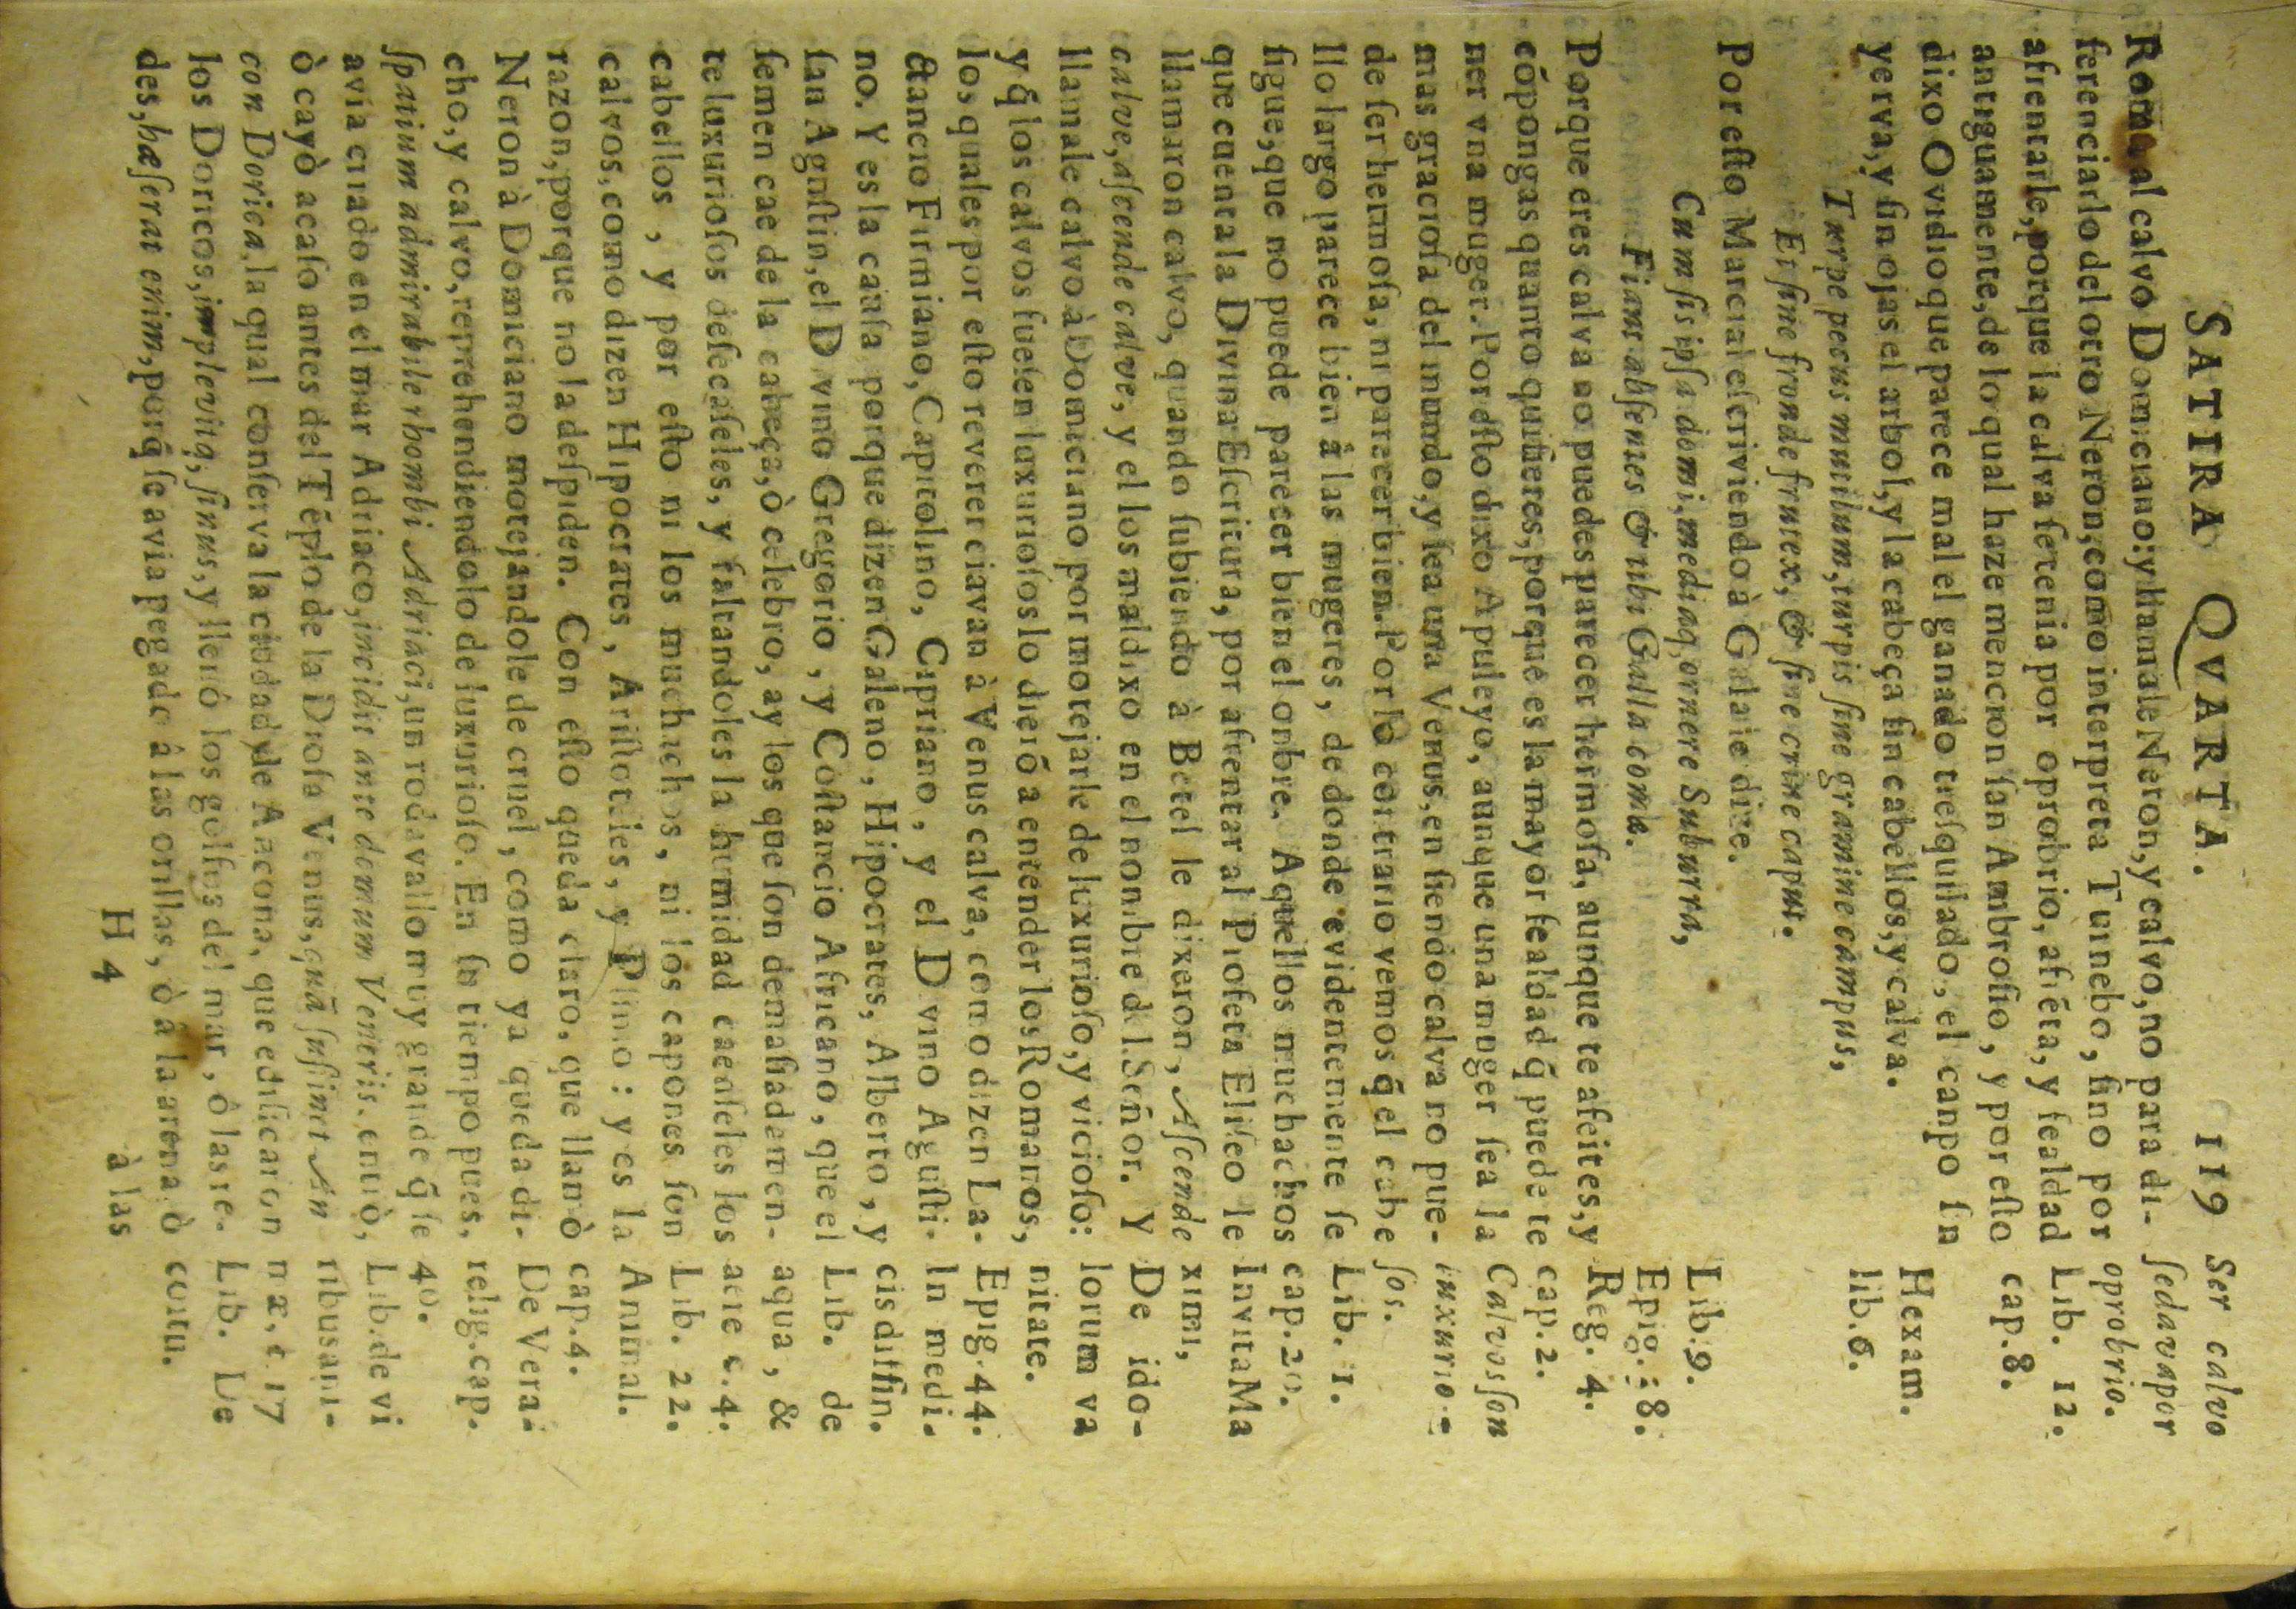 SATIRA QVARTA. 119
Roma, al calvo Domiciano: y llamale Neron, y calvo, no para di-
ferenciarlo del otro Neron, como interpreta Turnebo, sino por
afrentarle, porque la calva se tenia por oprobrio, afrēta, y fealdad
antiguamente, de lo qual haze mencion san Ambrosio, y por esto
dixo Ovidio que parece mal el ganado tresquilado, el canpo sin
yerva, y sin ojas el arbol, y la cabeça sin cabellos, y calva.
Turpe pecus mutilum, turpis sine gramine campus,
Et sine fronde frutex, & sine crine caput.
Por esto Marcial escriviendo à Galatie dize.
Cum sis ipsa domi, mediaq, ornere Suburra,
Fiant absentes & tibi Galla comæ.
Porque eres calva no puedes parecer hermosa, aunque te afeites, y
cōpongas quanto quisieres, porque es la mayor fealdad q̄ puede te
ner vna muger. Por esto dixo Apuleyo, aunque una muger sea la
mas graciosa del mundo, y sea una Venus, en siendo calva no pue-
de ser hermosa, ni parecer bien. Por lo contrario vemos q̄ el cabe
llo largo parece bien â las mugeres, de donde evidentemente se
sigue, que no puede parecer bien el onbre. Aquellos muchachos
que cuenta la Divina Escritura, por afrentar al Profeta Eliseo le
llamaron calvo, quando subiendo à Betel le dixeron, Ascende
calve, ascende calve, y el los maldixo en el nombre del Señor. Y
llamale calvo à Domiciano por motejarle de luxurioso, y vicioso:
y q̄ los calvos suelen luxuriosos lo dierō a entender los Romanos,
los quales por esto reverenciavan à Venus calva, como dizen La-
ctancio Firmiano, Capitolino, Cipriano, y el Divino Agusti-
no. Y es la causa porque dizen Galeno, Hipocrates, Alberto, y
san Agustin, el Divino Gregorio, y Costancio Africano, que el
semen cae de la cabeça, ò celebro, ay los que son demasiadamen-
te luxuriosos desecaseles, y faltandoles la humidad caenseles los
cabellos, y por esto ni los muchachos, ni los capones son
calvos, como dizen Hipocrates, Aristoteles, y Plinio: y es la
razon, porque no la despiden. Con esto queda claro, que llamò
Neron à Domiciano motejandole de cruel, como ya queda di-
cho, y calvo, reprehendiendolo de luxurioso. En su tiempo pues,
spatium admirabile rhombi Adriaci, un rodavallo muy grande q̄ se
avia criado en el mar Adriaco, incidit ante domum Veneris, entrò,
ò cayò acaso antes del Tēplo de la Diosa Venus, quā sustinet An
con Dorica, la qual conserva la ciudad de Ancona, que edificaron
los Doricos, implevitq, sinus, y llenó los golfos del mar, ò las re-
des, hæserat enim, porq̄ se avia pegado á las orillas, ò á la arena, ò
H 4 à las
Ser calvo
se dava por
oprobrio.
Lib. 12.
cap. 8.
Hexam.
lib. 6.
Lib. 9.
Epig. 38.
Reg. 4.
cap. 2.
Calvos son
luxurio-
sos.
Lib. 1.
cap. 20.
Invita Ma
ximi,
De ido-
lorum va
nitate.
Epig. 44.
In medi-
cis diffin.
Lib. de
aqua, &
aere c. 4.
Lib. 22.
Animal.
cap. 4.
De Vera
relig. cap.
40.
Lib. de vi
ribus ani-
næ, c. 17
Lib. De
coitu.